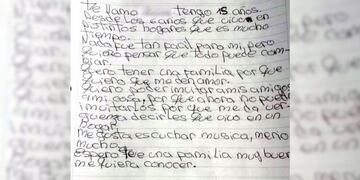 te llamo tengo 15 años.
Desde los 6 años que vivo en
distintos hogares que es mucho
tiempo.
Nada fue tan facil para mi, pero
quiero pensar que todo puede cam-
biar.
Quiero tener una familia, por que
quiero que me den amor.
Quiero poder invitar amis amigos
ami casa, por que ahora no puedo
invitarlos, por que me da ver-
guenza decirles que vivo en un
hogar.
me gusta escuchar musica, merio
mucho
Espero que una familia muy buen
me quiera conocer.